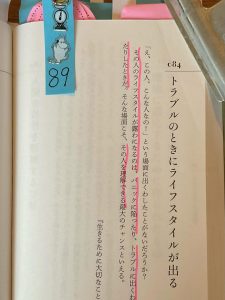 084
トラブルのときにライフスタイルが出る
「え、この人、こんな人なの！」という場面に出くわしたことがないだろうか？
その人のライフスタイルが露わになるのは、パニックに陥ったり、トラブルに出くわし
たりしたときだ。そんな場面こそ、その人を理解できる最大のチャンスといえる。
『生きるために大切なこと
89